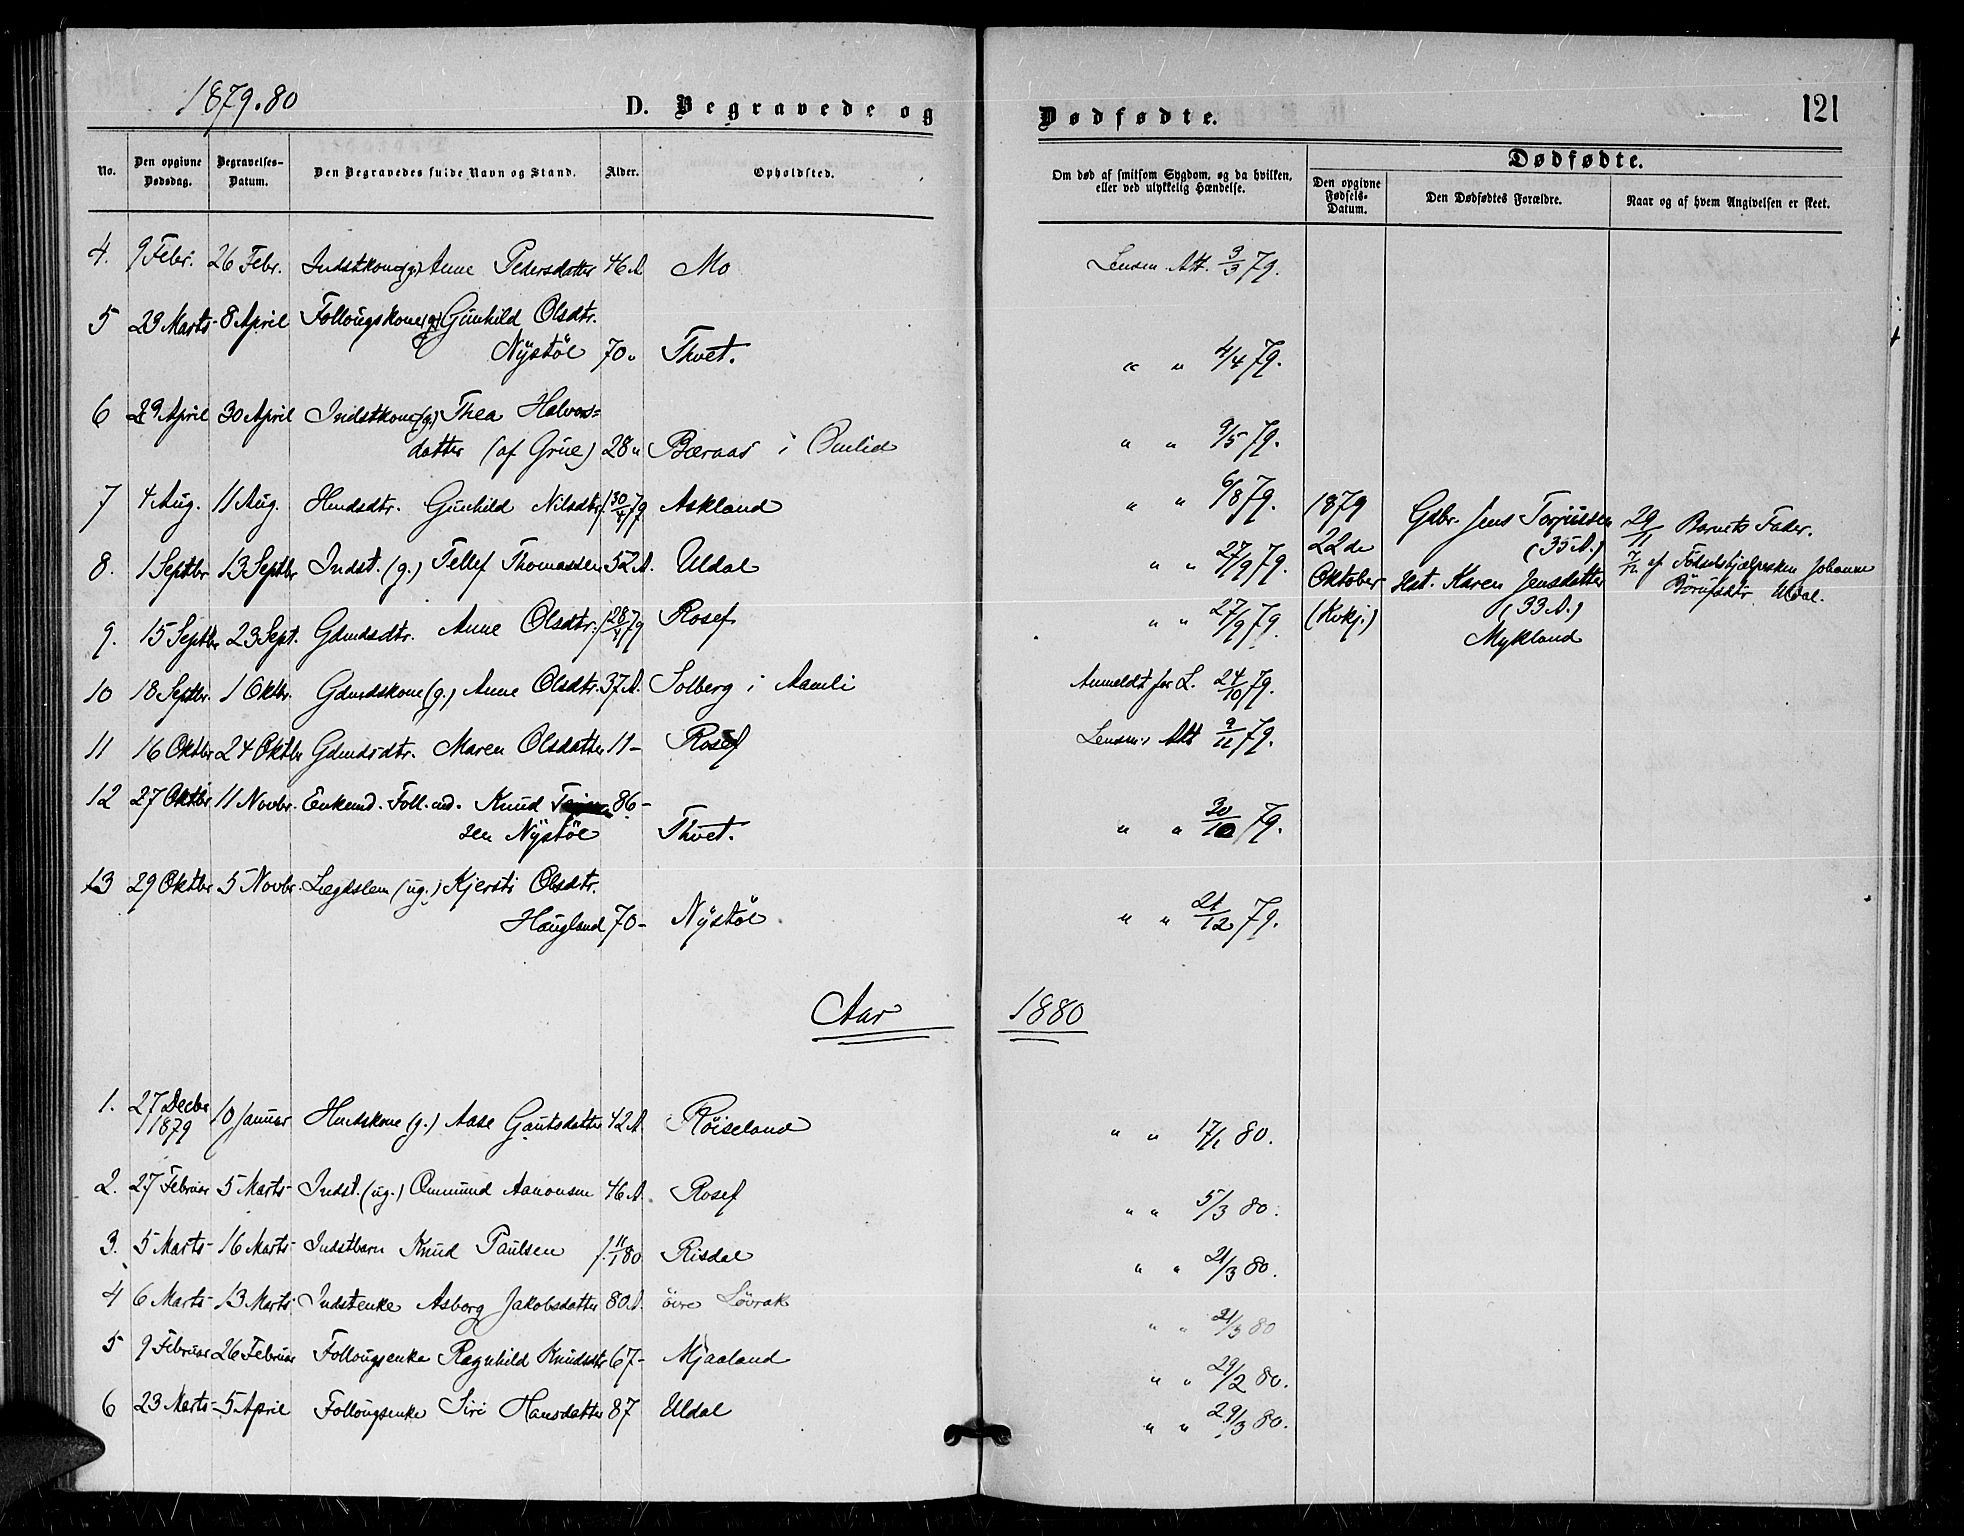 1879.80
D. Begravede og
Dødfødte.
121
No.
Den opgivne Dødsdag.
Begravelses-Datum.
Den Begravedes fulde Navn og Stand.
Alder.
Opholdsted.
Om død af smitsom Sygdom, og da hvilken, eller ved ulykkelig Hændelse.
Dødfødte.
Den opgivne Fødsels-Datum.
Den Dødfødtes Forældre.
Naar og af hvem Angivelsen er skeet.
4. 9 Febr. 26 Febr. Indstkone (g.) Anne Pedersdatter 46 A. Mo Lensm. Att. 3/3 79.
5 23 Marts 8 April Follougskone (g.) Gunhild Olsdtr.
Nÿstöl 70 " Thvet. " " 4/4 79.
6 29 April 30 April Indstkone (g.) Thea Halvors=
datter (af Grue) 28 " Bæraas i Omlid " " 9/5 79.
7 4 Aug. 11 Aug. Hmdsdtr. Gunhild Nilsdtr f. 30/4 79 Askland " " 6/8 79.
8. 1 Septbr 13 Septbr Indst. (g.) Tellef Thomassen 52 A. Uldal " " 27/9 79.
9. 15 Septbr 23 Sept. Gdmdsdtr. Anne Olsdtr. f. 28/4 79 Rosef " " 27/9 79.
1879
22de
Oktober
(Kvkj.)
Gdbr. Jens Torjussen
(35 A.)
Hst. Karen Jensdatter
(33 A.)
Mykland
29/11 Barnets Fader.
7/12 af Fødselshjælpersken Johanne
Uldal.
10 18 Septbr. 1 Oktbr. Gdmdskone (g.) Anne Olsdtr. 37 A. Solberg i Aamli Anmeldt for L. 24/10 79.
11 16 Oktbr 24 Oktbr Gdmdsdtr. Maren Olsdatter 11 - Rosef Lensm.s Att 9/11 79.
12 27 Oktbr 11 Novbr. Enkemd. Foll.md. Knud 86 -
sen Nÿstöl Thvet. " " 30/10 79.
13 29 Oktbr 5 Novbr. Lægdslem (ug.) Kjersti Olsdtr.
Haugland 70 - Nÿstöl " " 21/12 79.
Aar 1880
1. 27 Decbr 1879 10 Januar Hmdskone (g.) Aase Gautsdatter 42 A. Röiseland " " 17/1 80.
2. 27 Februar 5 Marts Indst. (ug.) Ommund Aanonsen 46 A. Rosef " " 5/3 80.
3. 5 Marts 16 Marts Indstbarn Knud Paulsen f. 11/1 80 Risdal " " 21/3 80.
4 6 Marts 13 Marts Indstenke Asborg Jakobsdatter 80 A. övre Lövrak " " 21/3 80
5 9 Februar 26 Februar Follougsenke Ragnhild Knudsdtr 67 - Mjaaland " " 29/2 80.
6 23 Marts 5 April Follougsenke Siri Hansdatter 87 Uldal " " 29/3 80.